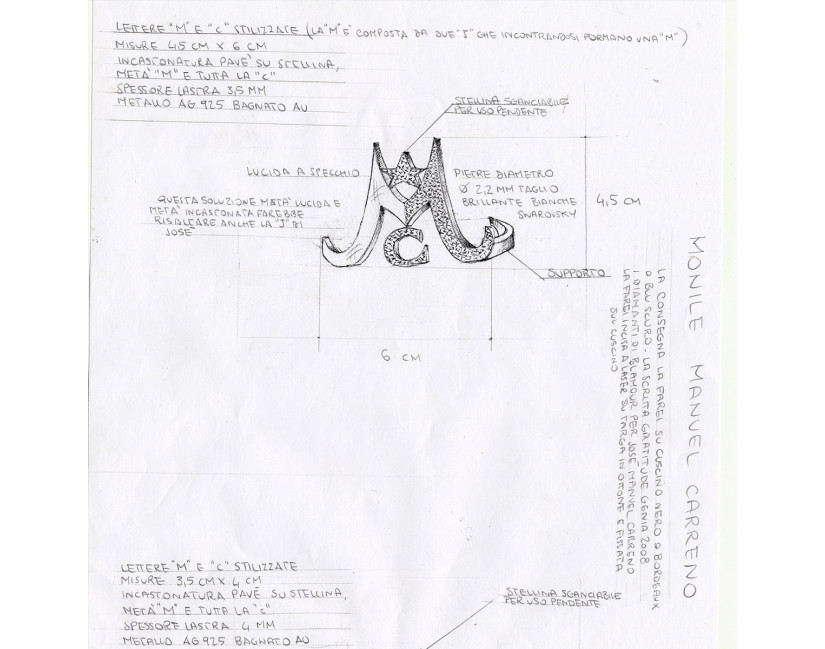 LETTERE "M" E "C" STILIZZATE (LA "M" E' COMPOSTA DA DUE "J" CHE INCONTRANDOSI FORMANO UNA "M")
MISURE 4,5 CM X 6 CM
INCASTONATURA PAVE' SU STELLINA,
META' "M" E TUTTA LA "C"
SPESSORE LASTRA 3,5 MM
METALLO AG 925 BAGNATO AU
STELLINA SGANCIABILE
PER USO PENDENTE
LUCIDA A SPECCHIO
PIETRE DIAMETRO
Ø 2,2 MM TAGLIO
BRILLANTE BIANCHE
SWAROVSKY
QUESTA SOLUZIONE META' LUCIDA E
META' INCASTONATA FAREBBE
RISALTARE ANCHE LA "J" DI
JOSE'
4,5 CM
SUPPORTO
6 CM
MONILE MANUEL CARRENO
LA CONSEGNA LA FAREI SU CUSCINO NERO O BORDEAUX
O BLU SCURO. LA SCRITTA GRATITUDE GENIA 2008
I DIAMANTI DI BLAMOUR PER JOSE' MANUEL CARRENO
LA FAREI INCISA A LASER SU TARGA IN OTTONE E FISSATA
SUL CUSCINO
LETTERE "M" E "C" STILIZZATE
MISURE 3,5 CM X 4 CM
INCASTONATURA PAVE' SU STELLINA,
META' "M" E TUTTA LA "C"
SPESSORE LASTRA 4 MM
METALLO AG 925 BAGNATO AU
STELLINA SGANCIABILE
PER USO PENDENTE